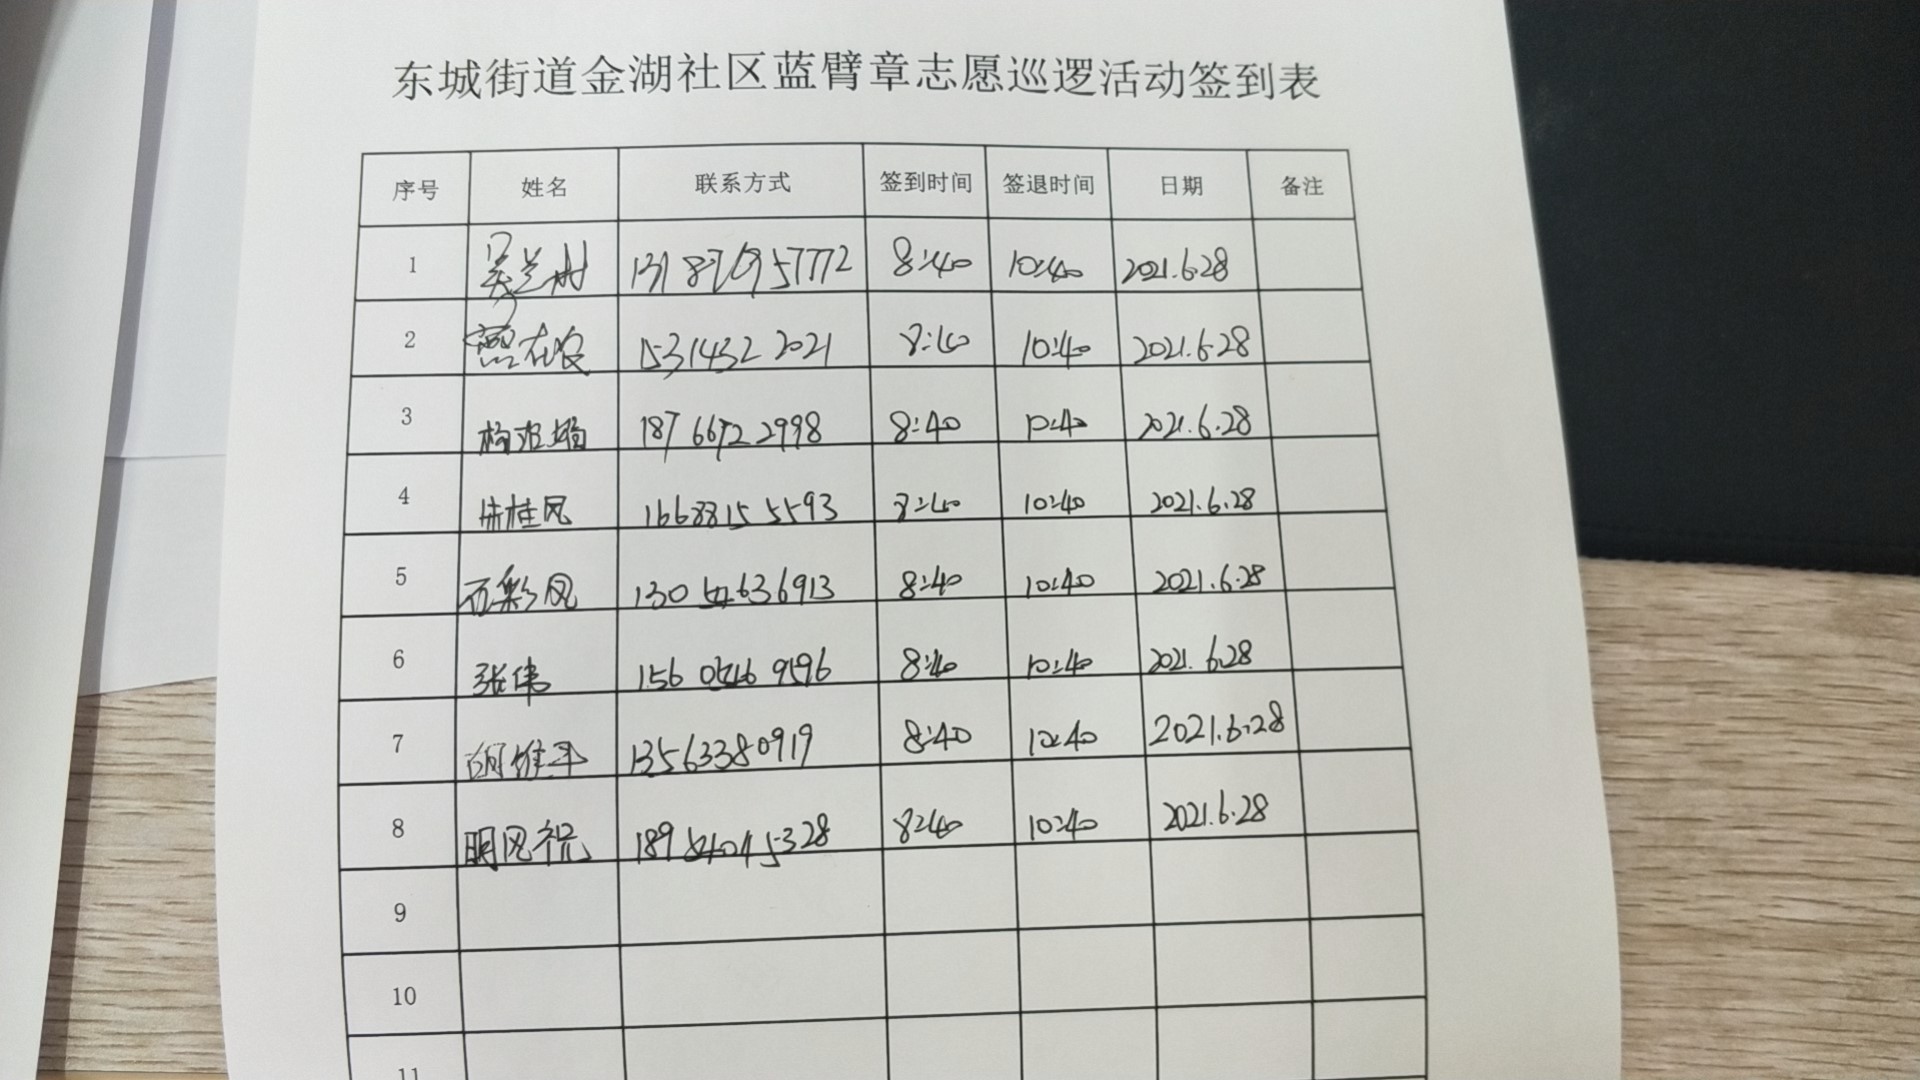 东城街道金湖社区蓝臂章志愿巡逻活动签到表
序号 姓名 联系方式 签到时间 签退时间 日期 备注
1 8:40 10:40 2021.6.28
2 15314322021 8:40 10:40 2021.6.28
3 18766722998 8:40 10:40 2021.6.28
4 朱桂凤 16688155593 8:40 10:40 2021.6.28
5 石彩凤 13054636913 8:40 10:40 2021.6.28
6 张伟 15605469596 8:40 10:40 2021.6.28
7 胡维平 13563380919 8:40 10:40 2021.6.28
8 明风祝 8:40 10:40 2021.6.28
9
10
11